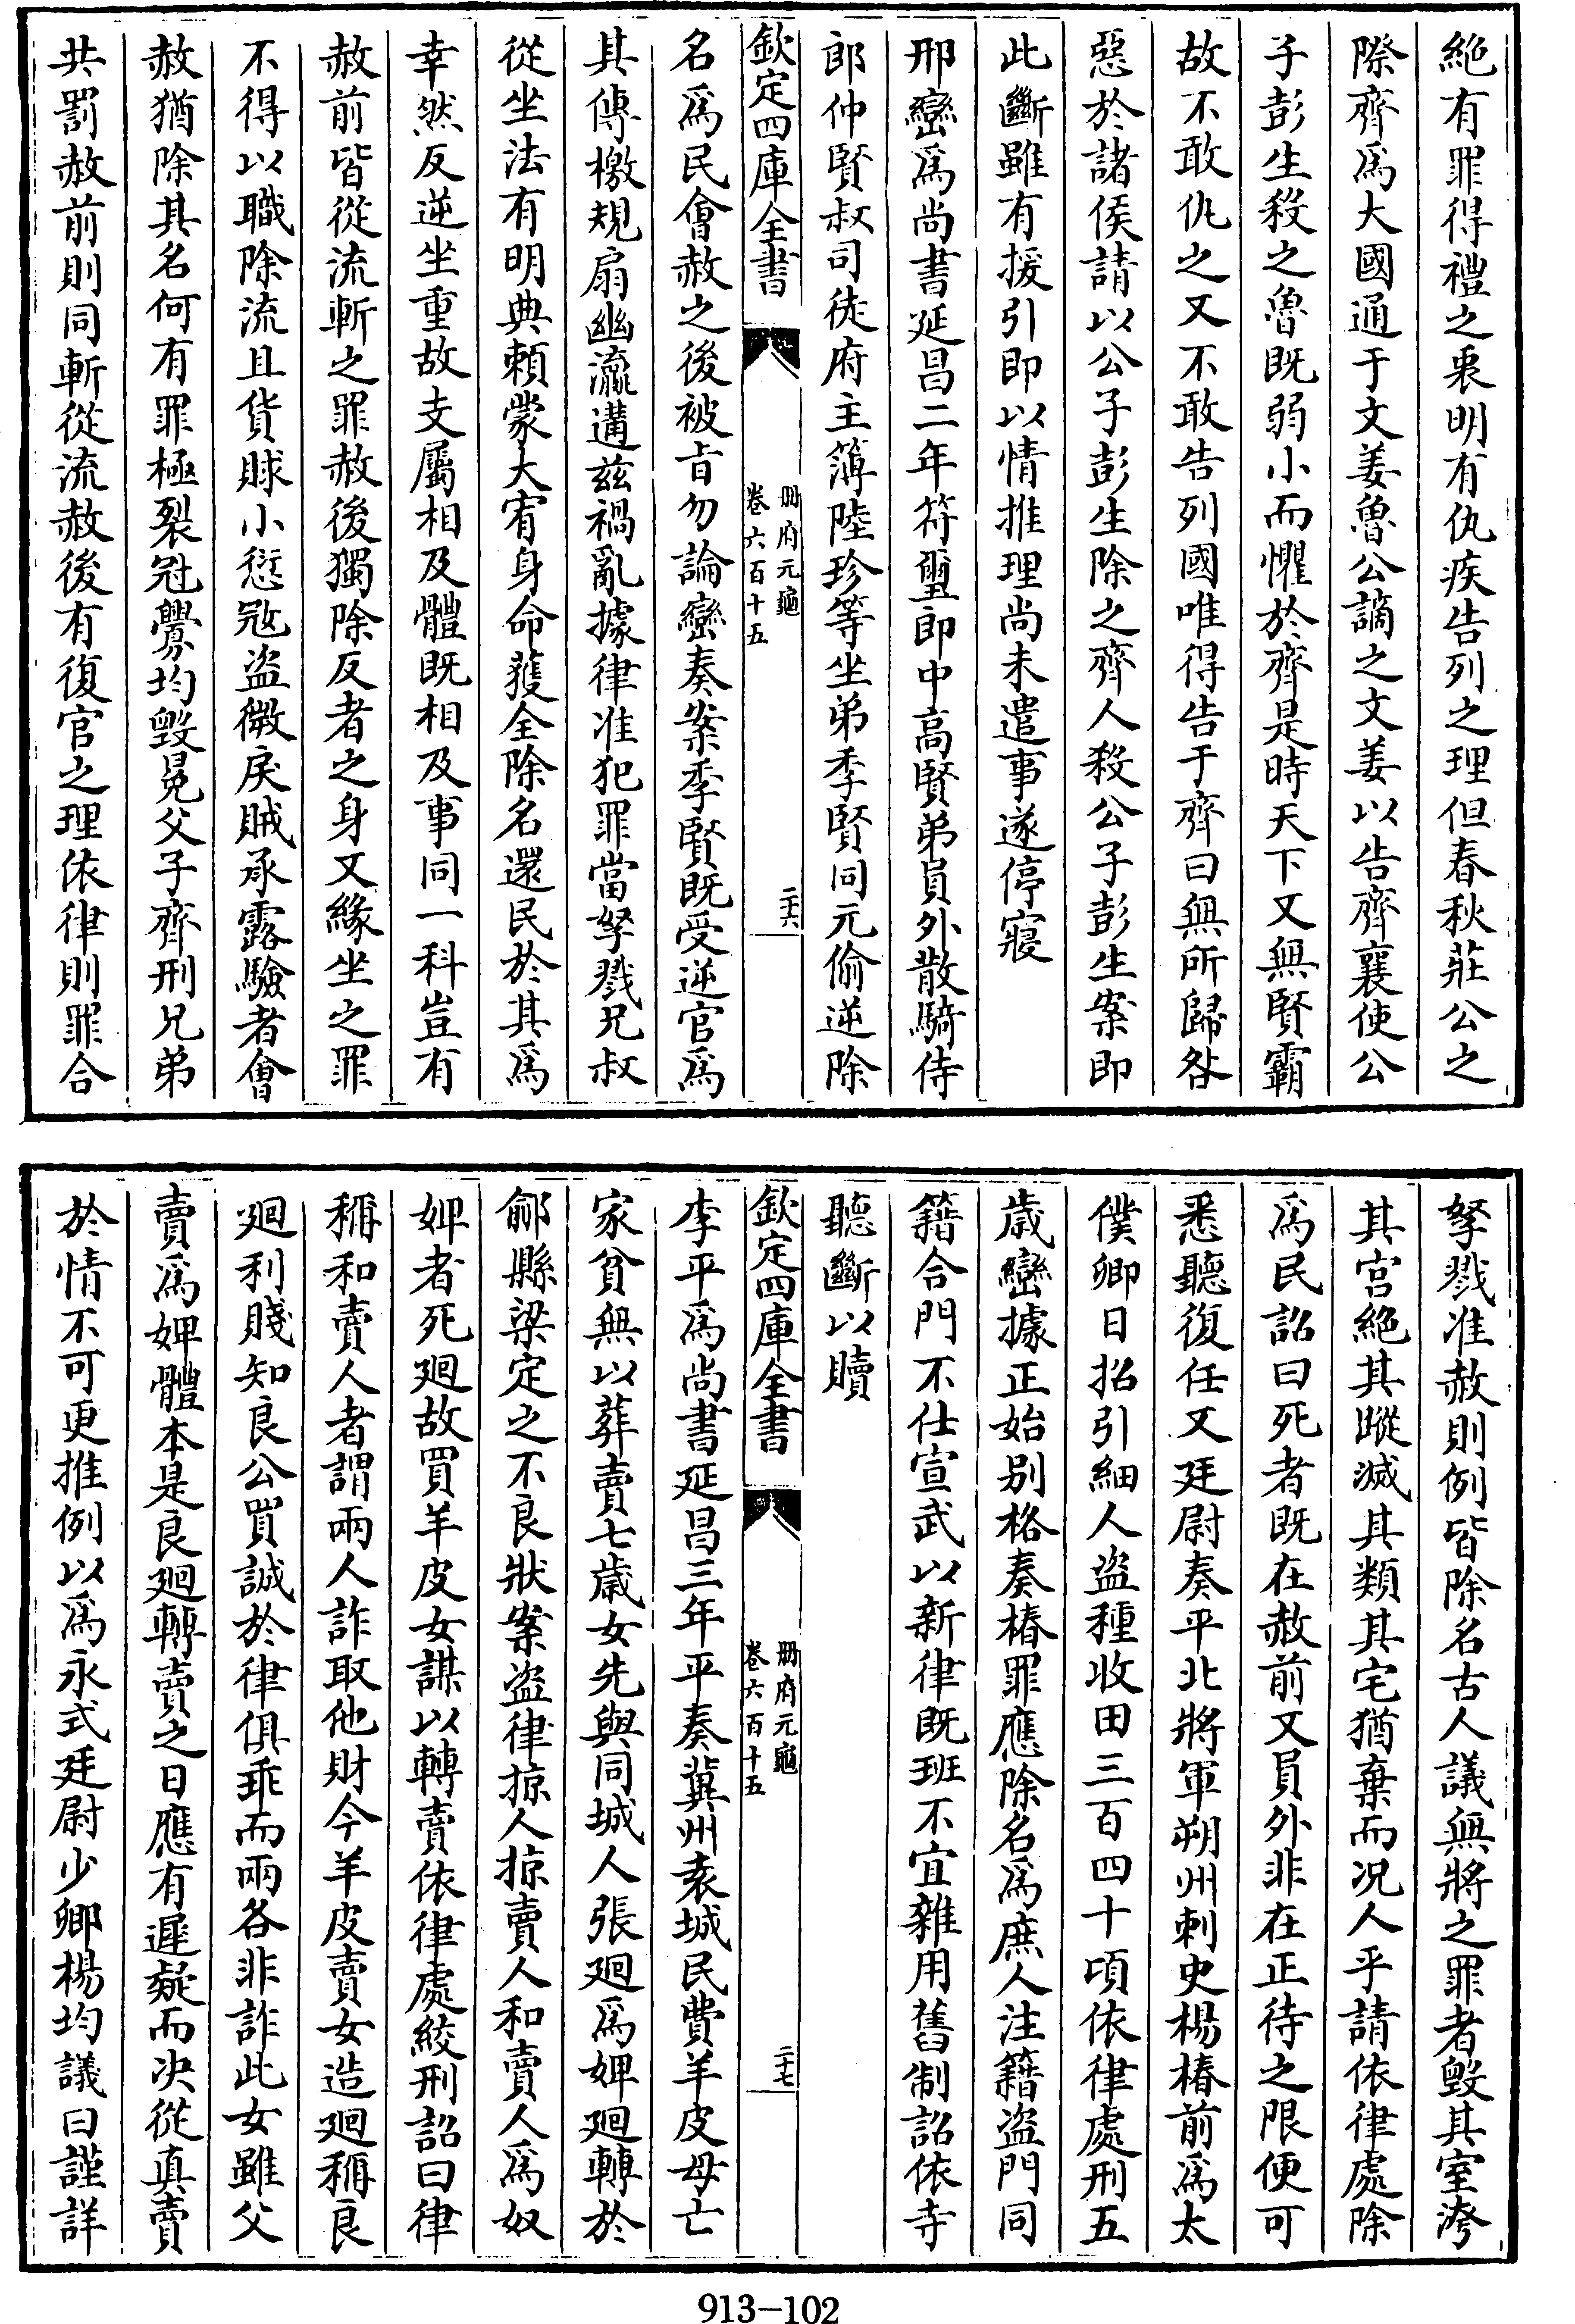 絶有罪得禮之衷明有仇疾告列之理但春秋莊公之
際齊爲大國通于文姜魯公謫之文姜以告齊襄使公
子彭生殺之魯既弱小而懼於齊是時天下又無賢霸
故不敢仇之又不敢告列國唯得告于齊曰無所歸咎
惡於諸侯請以公子彭生除之齊人殺公子彭生案即
此斷雖有援引即以情推理尚未遣事遂停寢
邢巒爲尚書延昌二年符璽郎中高賢弟員外散騎侍
郎仲賢叔司徒府主簿陸珍等坐弟季賢同元偷逆除
欽定四庫全書
冊府元龜
卷六百十五
二十六
名爲民會赦之後被㫖勿論巒奏案季賢既受逆官爲
其傳檄規扇幽瀛遘兹禍亂據律准犯罪當孥戮兄叔
從坐法有明典頼蒙大宥身命獲全除名還民於其爲
幸然反逆坐重故支屬相及體既相及事同一科豈有
赦前皆從流斬之罪赦後獨除反者之身又緣坐之罪
不得以職除流且貨賕小愆冦盜微戾贓承露驗者會
赦猶除其名何有罪極裂冠釁均毁冕父子齊刑兄弟
共罰赦前則同斬從流赦後有復官之理依律則罪合
孥戮准赦則例皆除名古人議無將之罪者毁其室洿
其宫絶其蹤滅其類其宅猶棄而况人乎請依律處除
爲民詔曰死者既在赦前又員外非在正待之限便可
悉聽復任又廷尉奏平北將軍朔州刺史楊椿前爲太
僕卿日招引細人盜種收田三百四十頃依律處刑五
歳巒據正始別格奏椿罪應除名爲庶人注籍盜門同
籍合門不仕宣武以新律既班不宜雜用舊制詔依寺
聽斷以贖
欽定四庫全書
冊府元龜
卷六百十五
二十七
李平爲尚書延昌三年平奏冀州袁城民費羊皮母亡
家貧無以葬賣七歳女先與同城人張廻爲婢廻轉於
鄃縣梁定之不良狀案盜律掠人掠賣人和賣人爲奴
婢者死廻故買羊皮女謀以轉賣依律處絞刑詔曰律
稱和賣人者謂兩人詐取他財今羊皮賣女造廻稱良
廻利賤知良公買誠於律俱乖而兩各非詐此女雖父
賣爲婢體本是良廻轉賣之日應有遲疑而决從真賣
於情不可更推例以爲永式廷尉少卿楊均議曰謹詳
913-102